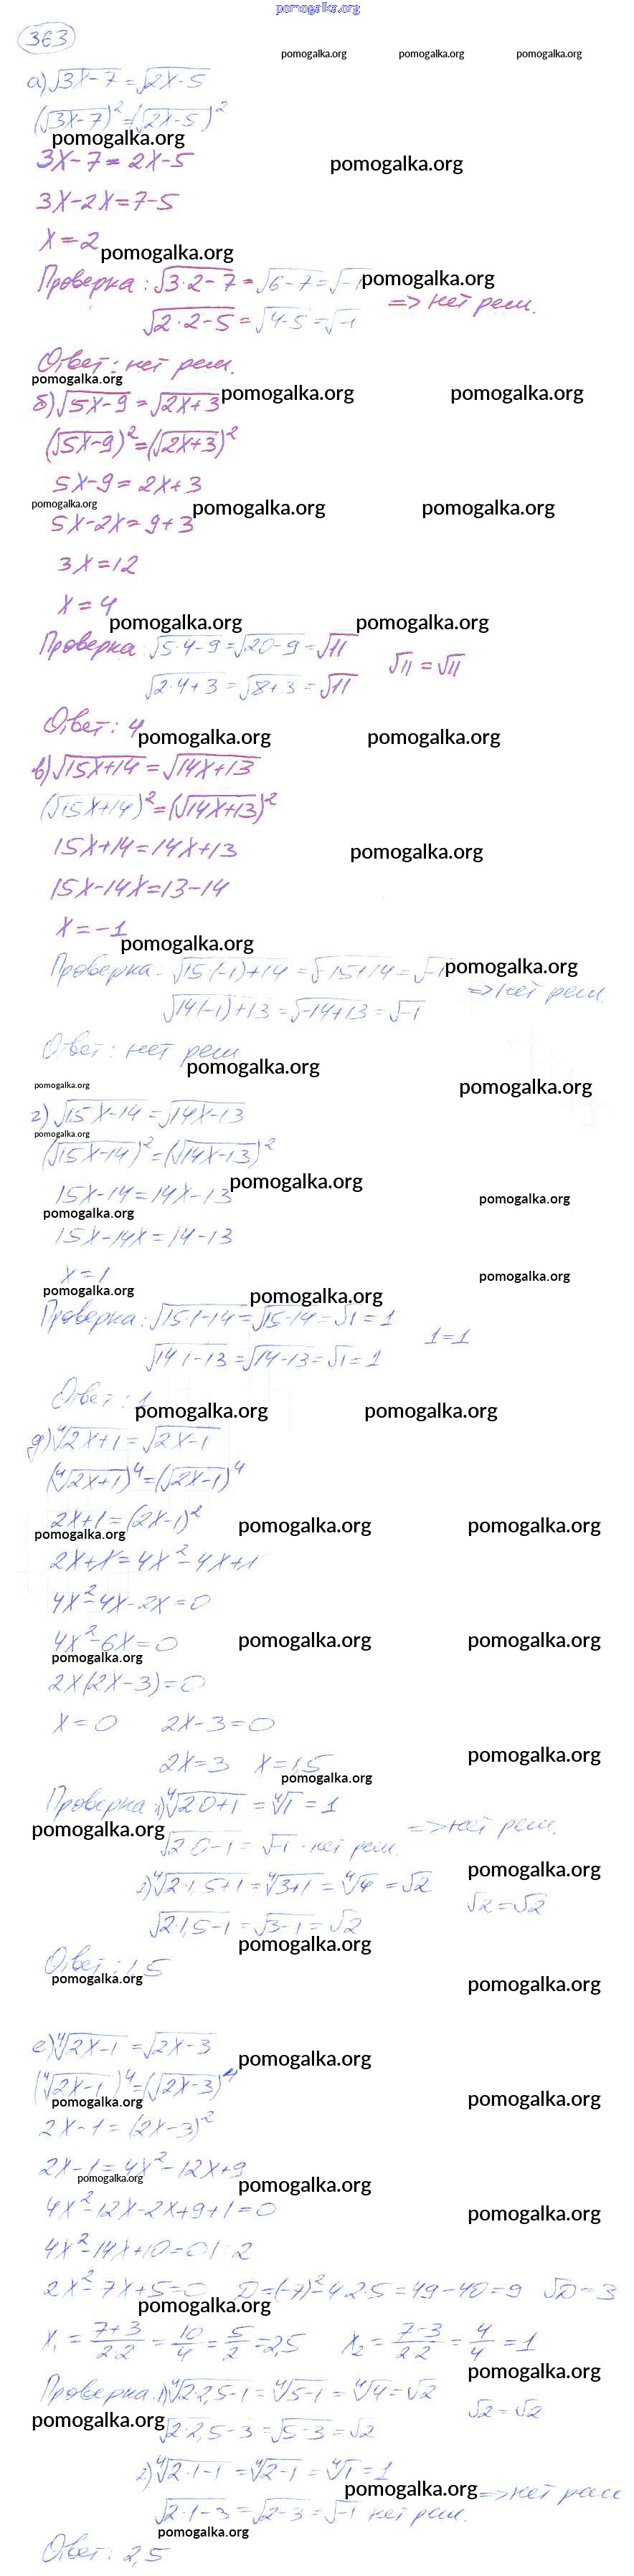 pomogalka.org
363
pomogalka.org pomogalka.org pomogalka.org
а) √3x-7 = √2x-5
(√3x-7)² = (√2x-5)²
pomogalka.org
3x-7 = 2x-5 pomogalka.org
3x-2x = 7-5
x = 2
pomogalka.org
Проверка: √3·2-7 = √6-7 = √-1 pomogalka.org
=> нет реш.
√2·2-5 = √4-5 = √-1
Ответ: нет реш.
pomogalka.org
б) √5x-9 = √2x+3 pomogalka.org pomogalka.org
(√5x-9)² = (√2x+3)²
5x-9 = 2x+3
pomogalka.org pomogalka.org pomogalka.org
5x-2x = 9+3
3x = 12
x = 4
pomogalka.org pomogalka.org
Проверка: √5·4-9 = √20-9 = √11
√11 = √11
√2·4+3 = √8+3 = √11
Ответ: 4
pomogalka.org pomogalka.org
в) √15x+14 = √14x+13
(√15x+14)² = (√14x+13)²
15x+14 = 14x+13 pomogalka.org
15x-14x = 13-14
x = -1
pomogalka.org
Проверка: √15(-1)+14 = √-15+14 = √-1 pomogalka.org
=> нет реш
√14(-1)+13 = √-14+13 = √-1
Ответ: нет реш
pomogalka.org
pomogalka.org pomogalka.org
г) √15x-14 = √14x-13
pomogalka.org
(√15x-14)² = (√14x-13)²
15x-14 = 14x-13 pomogalka.org pomogalka.org
pomogalka.org
15x-14x = 14-13
x = 1 pomogalka.org
pomogalka.org pomogalka.org
Проверка: √15·1-14 = √15-14 = √1 = 1
1=1
√14·1-13 = √14-13 = √1 = 1
Ответ: 1
pomogalka.org pomogalka.org
д) ⁴√2x+1 = √2x-1
(⁴√2x+1)⁴ = (√2x-1)⁴
2x+1 = (2x-1)² pomogalka.org pomogalka.org
pomogalka.org
2x+1 = 4x²-4x+1
4x²-4x-2x = 0
4x²-6x = 0 pomogalka.org pomogalka.org
pomogalka.org
2x(2x-3) = 0
x = 0 2x-3 = 0
2x = 3 x = 1,5 pomogalka.org
pomogalka.org
Проверка: 1) ⁴√2·0+1 = ⁴√1 = 1
pomogalka.org => нет реш.
√2·0-1 = √-1 - нет реш.
2) ⁴√2·1,5+1 = ⁴√3+1 = ⁴√4 = √2 pomogalka.org
√2 = √2
√2·1,5-1 = √3-1 = √2
pomogalka.org
Ответ: 1,5
pomogalka.org pomogalka.org
е) ⁴√2x-1 = √2x-3
pomogalka.org
(⁴√2x-1)⁴ = (√2x-3)⁴
pomogalka.org pomogalka.org
2x-1 = (2x-3)²
2x-1 = 4x²-12x+9
pomogalka.org pomogalka.org
4x²-12x-2x+9+1 = 0 pomogalka.org
4x²-14x+10 = 0 | : 2
2x²-7x+5 = 0 D = (-7)²-4·2·5 = 49-40 = 9 √D = 3
pomogalka.org
x₁ = 7+3/2·2 = 10/4 = 5/2 = 2,5 x₂ = 7-3/2·2 = 4/4 = 1
pomogalka.org
Проверка: 1) ⁴√2·2,5-1 = ⁴√5-1 = ⁴√4 = √2
√2 = √2
pomogalka.org √2·2,5-3 = √5-3 = √2
2) ⁴√2·1-1 = ⁴√2-1 = ⁴√1 = 1
pomogalka.org => нет реш
√2·1-3 = √2-3 = √-1 нет реш.
pomogalka.org
Ответ: 2,5